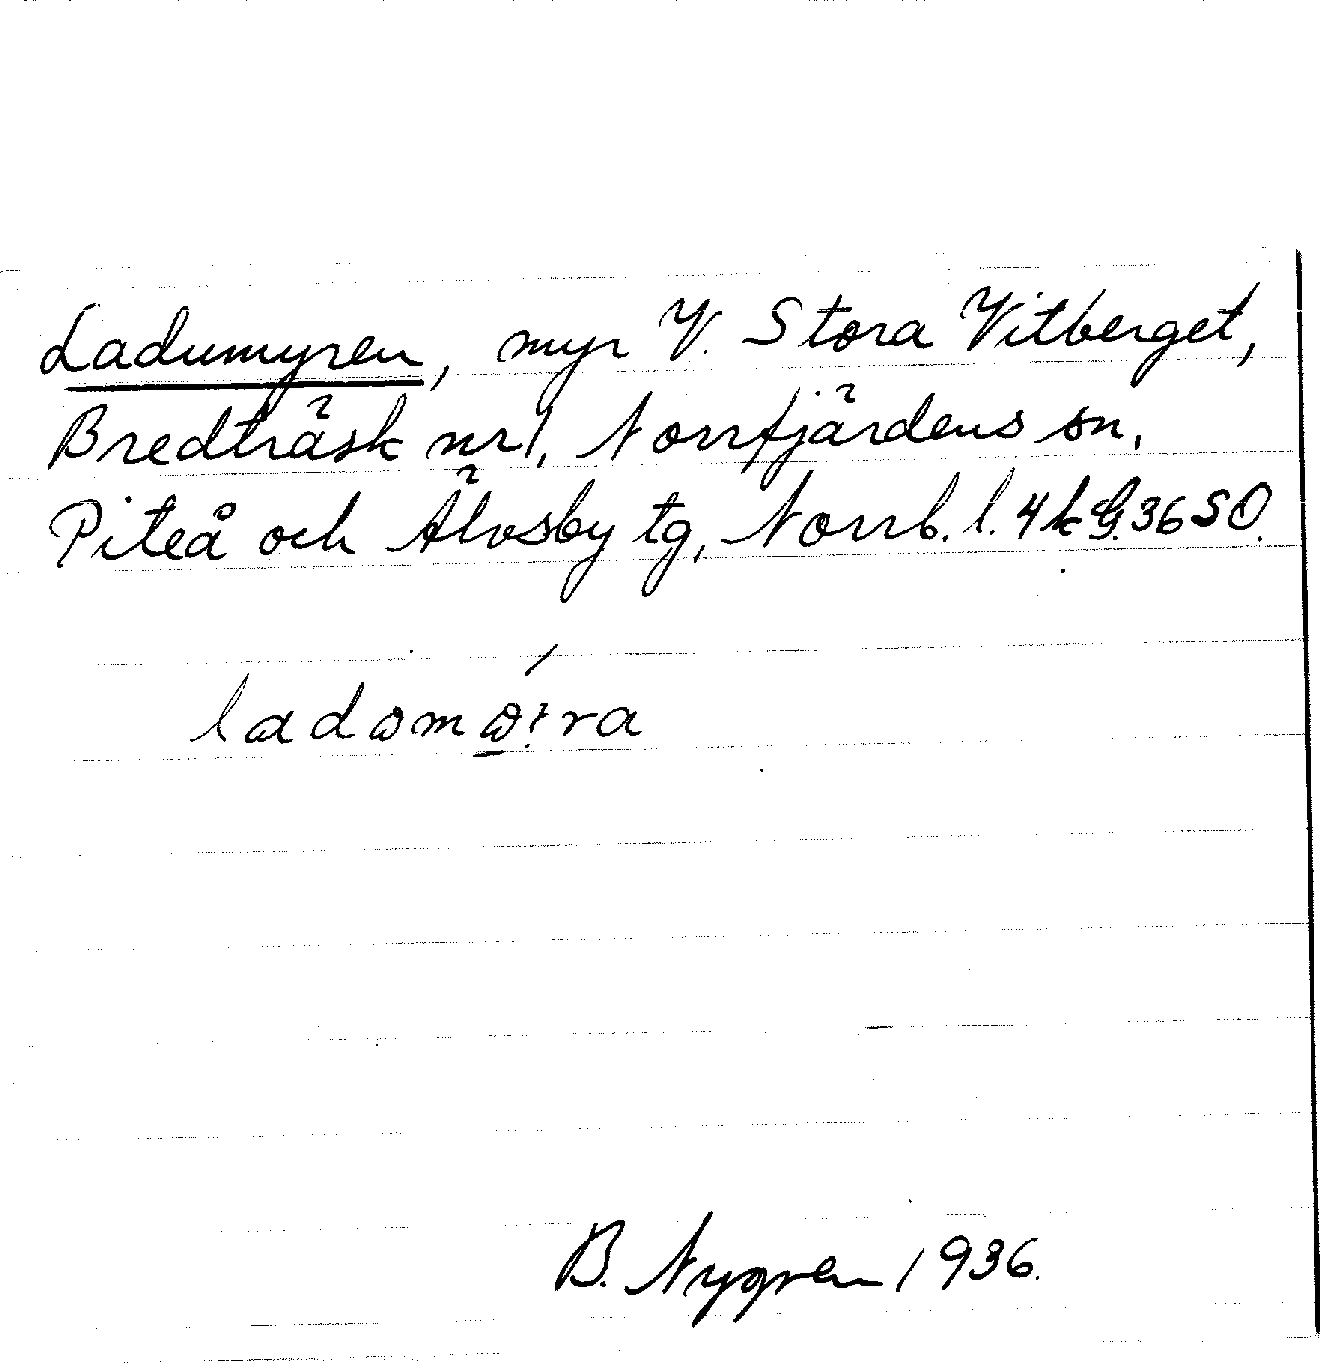 Ladumyren, myr V. Stora Vitberget,
Bredträsk nr 1, Norrfjärdens sn.
Piteå och Älvsby tg, Norrb. l. 4 k G. 36 SO.
B. Nygren 1936.